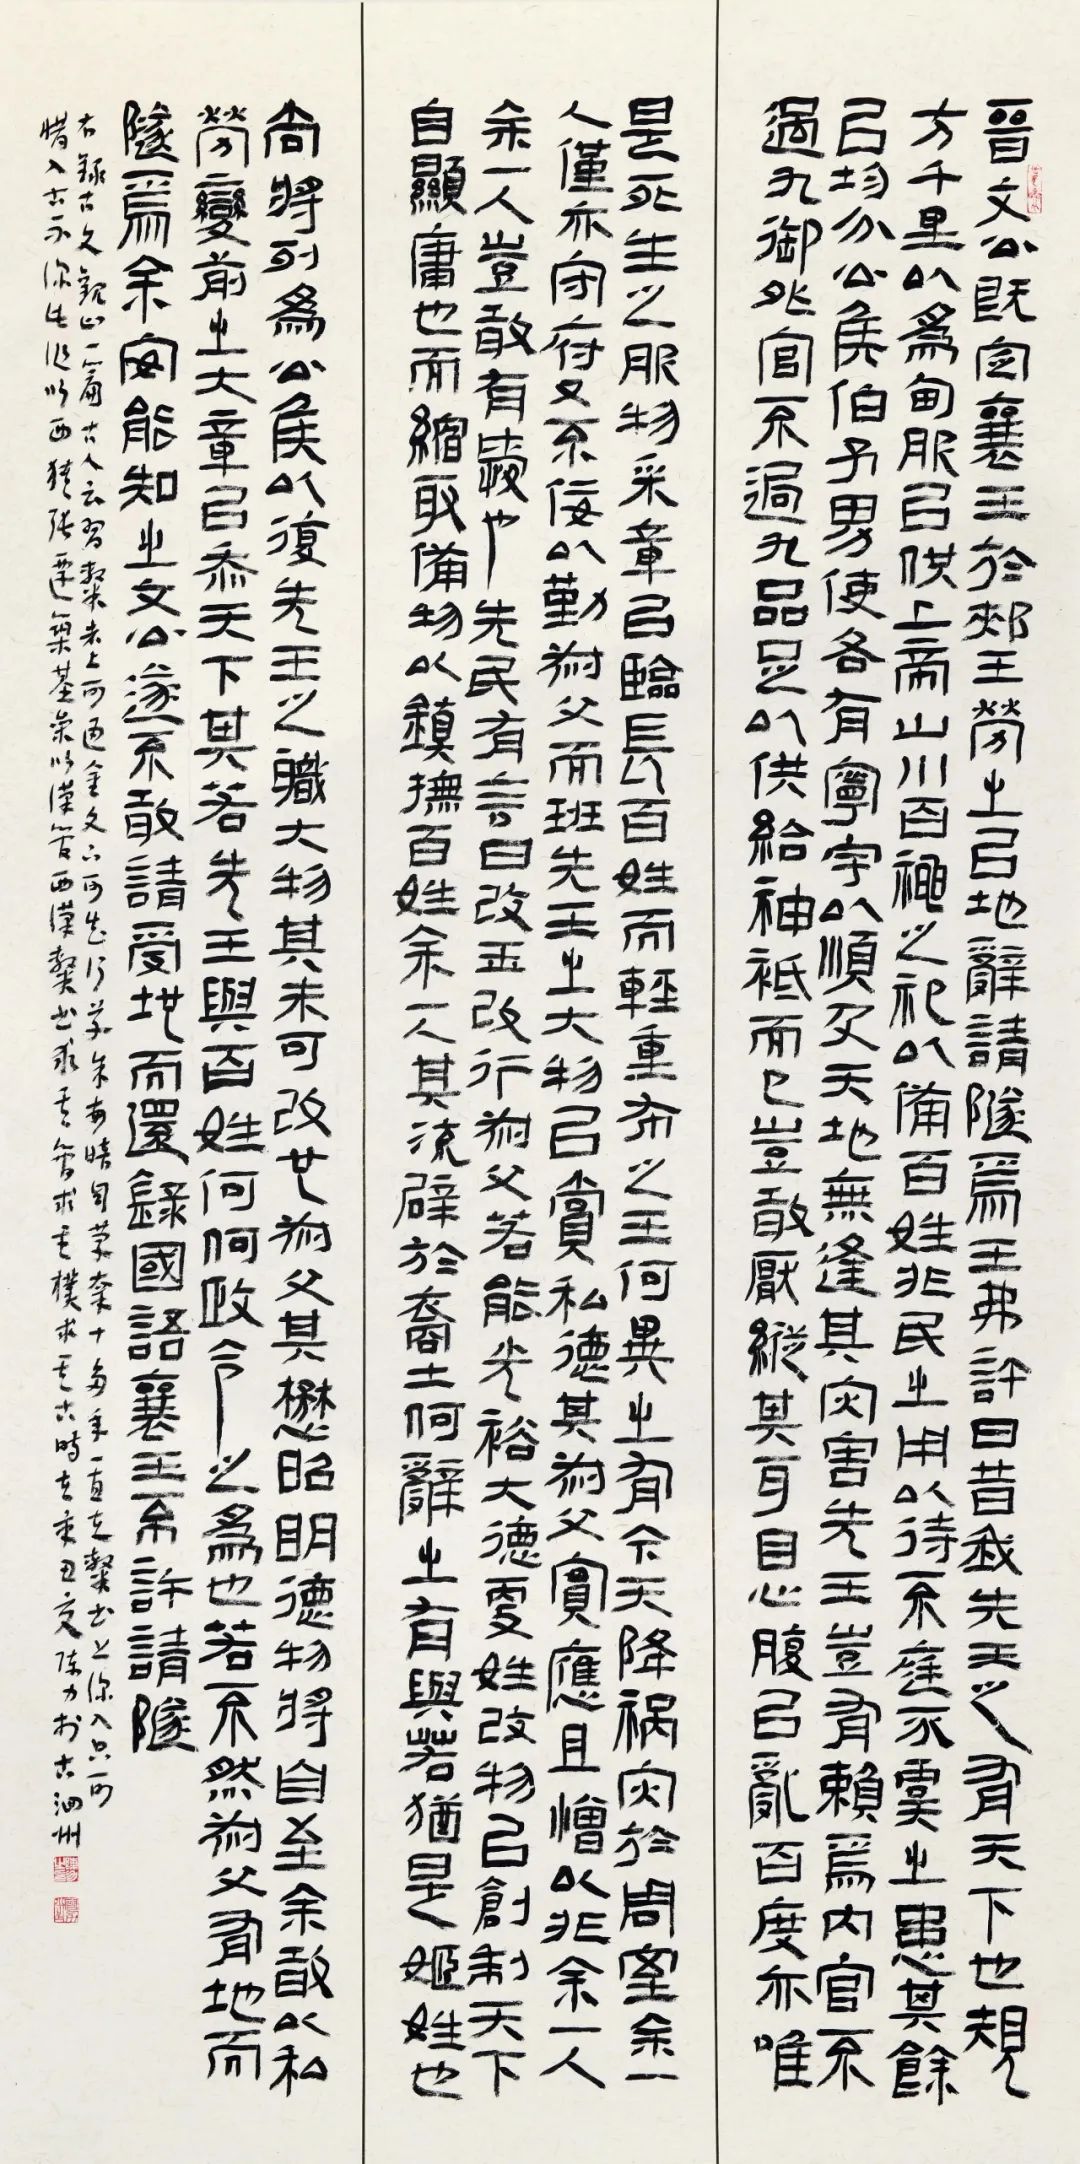 晉文公既定襄王於郟王勞之以地辭請隧焉王弗許曰昔我先王之有天下也規
方千里以為甸服以供上帝山川百神之祀以備百姓兆民之用以待不庭不虞之患其餘
以均分公侯伯子男使各有寧宇以順及天地無逢其災害先王豈有賴焉內官不
過九御外官不過九品足以供給神祇而已豈敢厭縱其耳目心腹以亂百度亦唯
是死生之服物采章以臨長百姓而輕重布之王何異之有今天降禍災於周室余一
人僅亦守府又不佞以勤叔父而班先王之大物以賞私德其叔父實應且憎以非余一人
余一人豈敢有愛也先民有言曰改玉改行叔父若能光裕大德更姓改物以創制天下
自顯庸也而縮取備物以鎮撫百姓余一人其流辟於裔土何辭之有與若猶是姬姓也
尚將列為公侯以復先王之職大物其未可改也叔父其懋昭明德物將自至余敢以私
勞變前之大章以忝天下其若先王與百姓何何政令之為也若不然叔父有地而
隧焉余安能知之文公遂不敢請受地而還錄國語襄王不許請隧
右錄古文觀止一篇古人云習隸書上可通金文下可啟行草暗自摹索十多年一直在隸書上深入只可
惜入古不深此作以西狹張遷為基以漢簡西漢隸書求其求其樸求其古時在辛丑夏陳力於古泗州